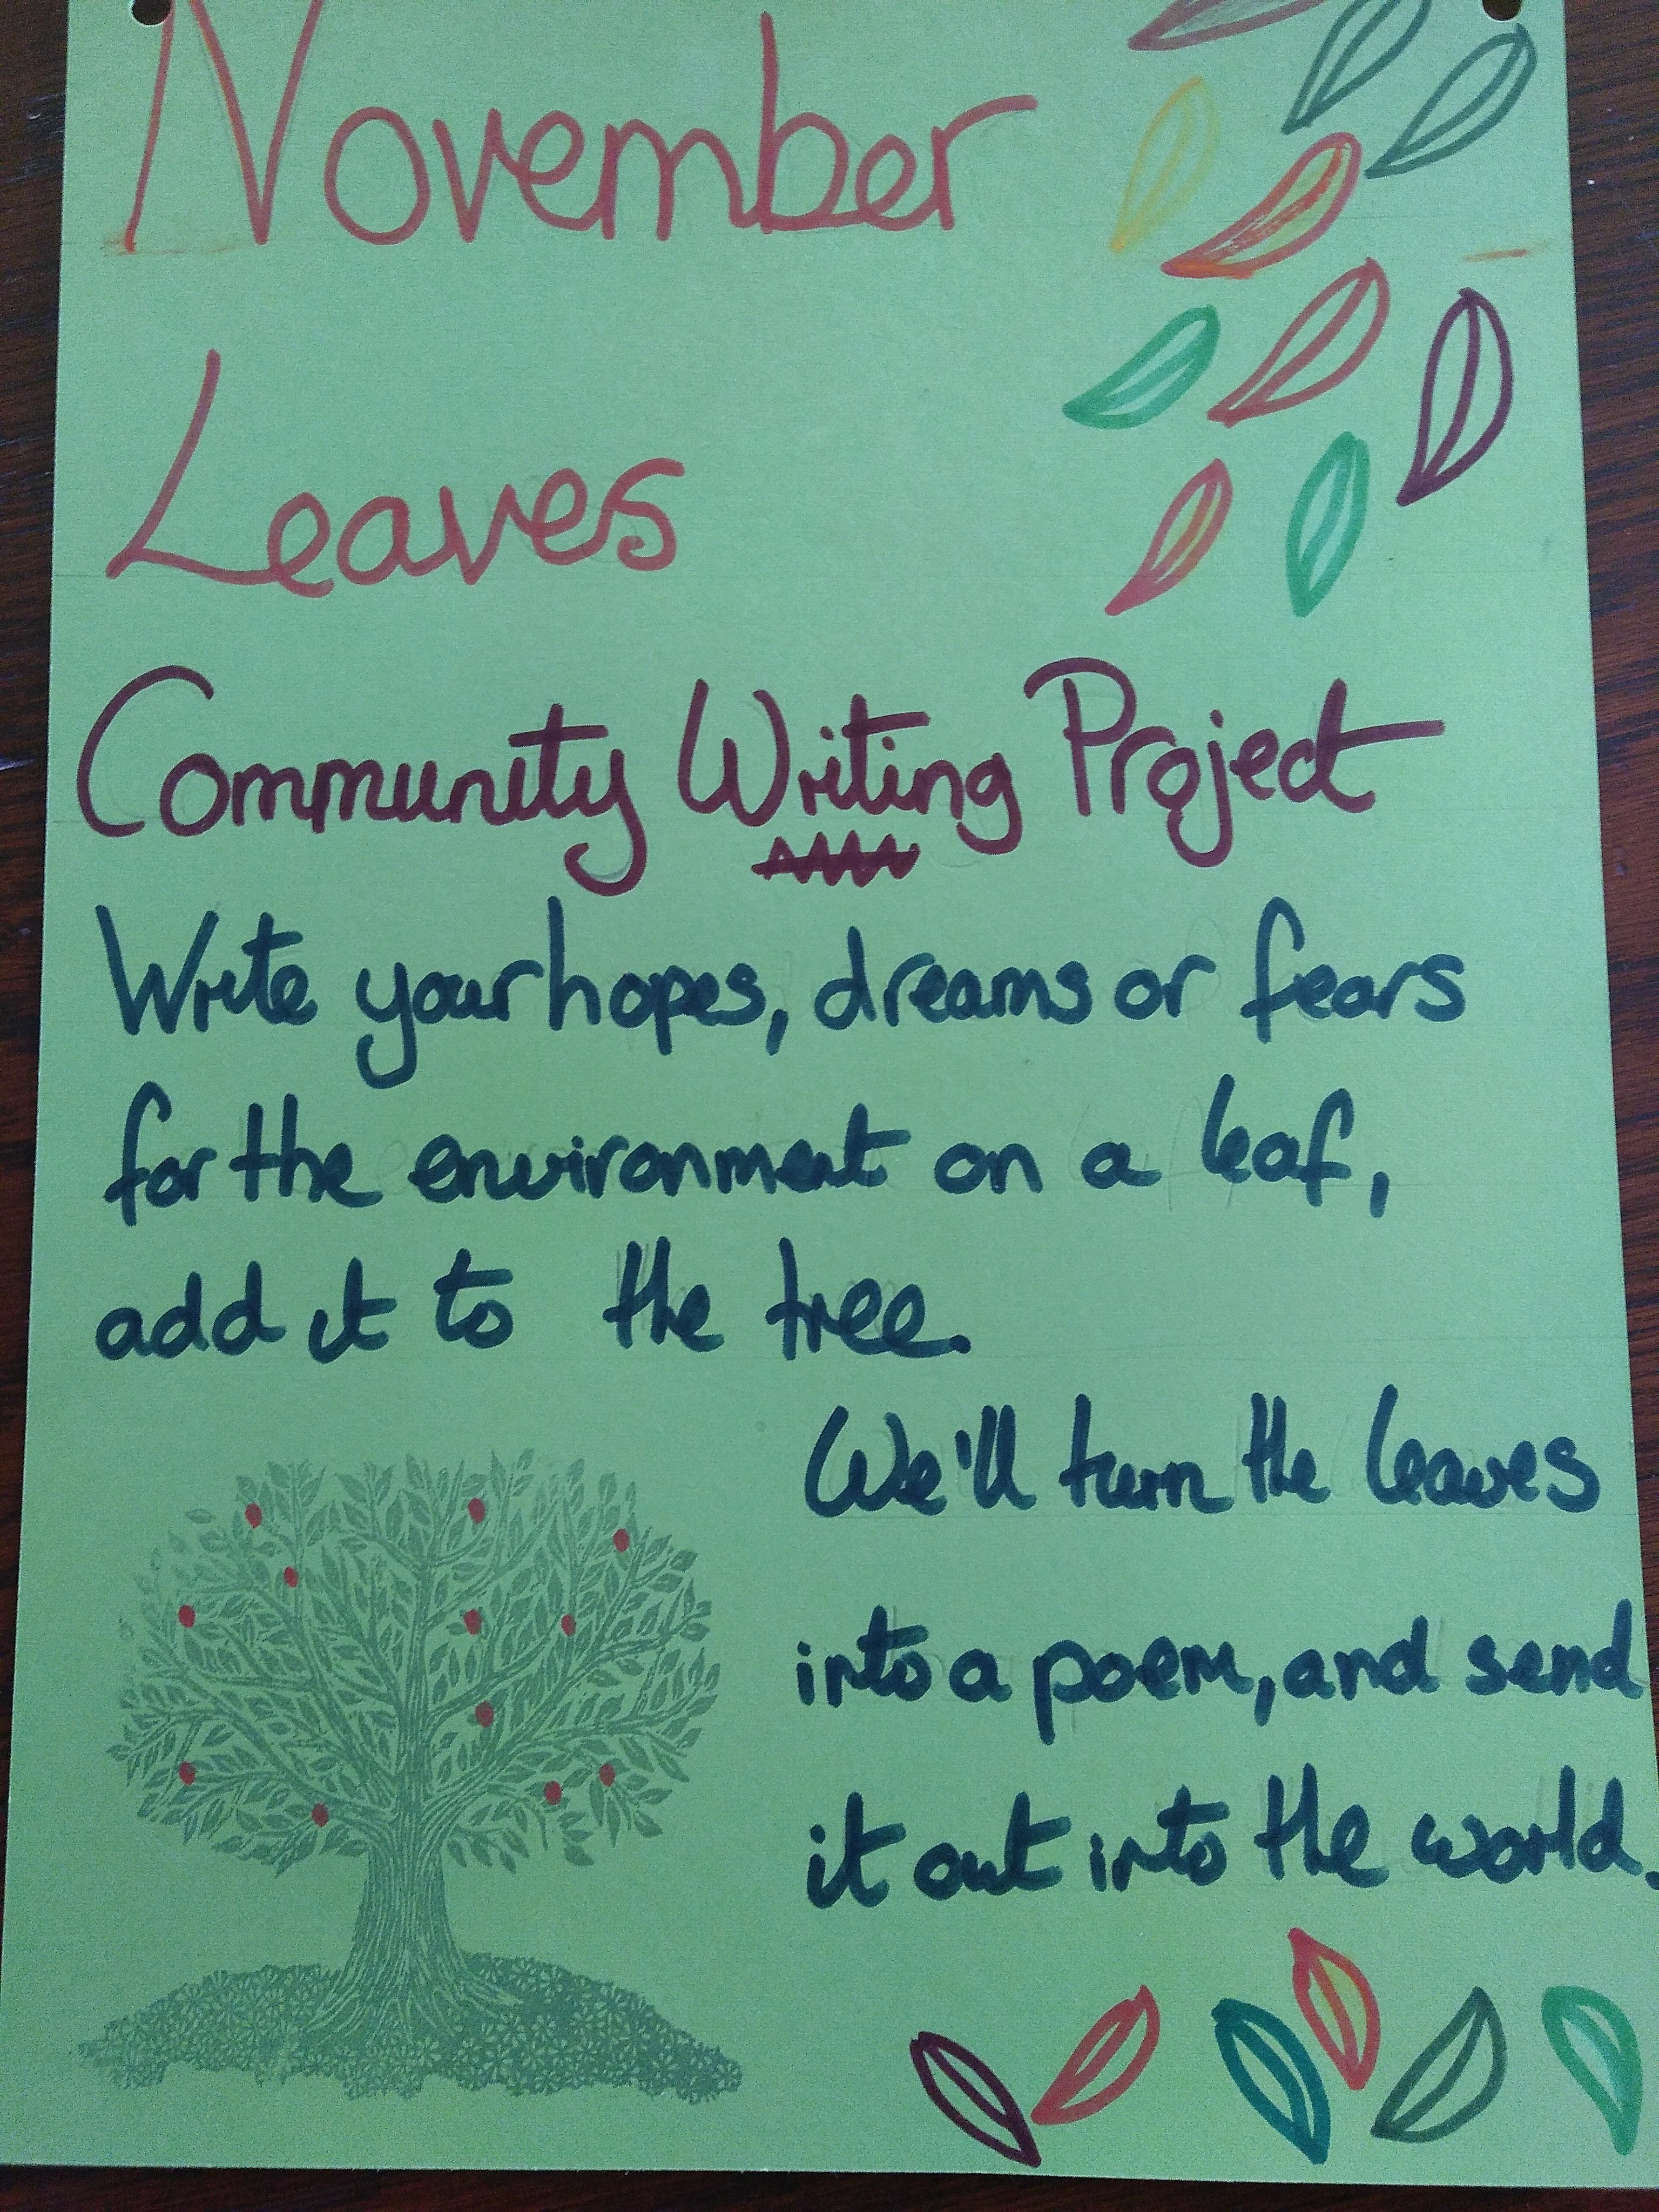 November
Leaves
Community Writing Project
Write your hopes, dreams or fears
for the environment on a leaf,
add it to the tree.
We'll turn the leaves
into a poem, and send
it out into the world.